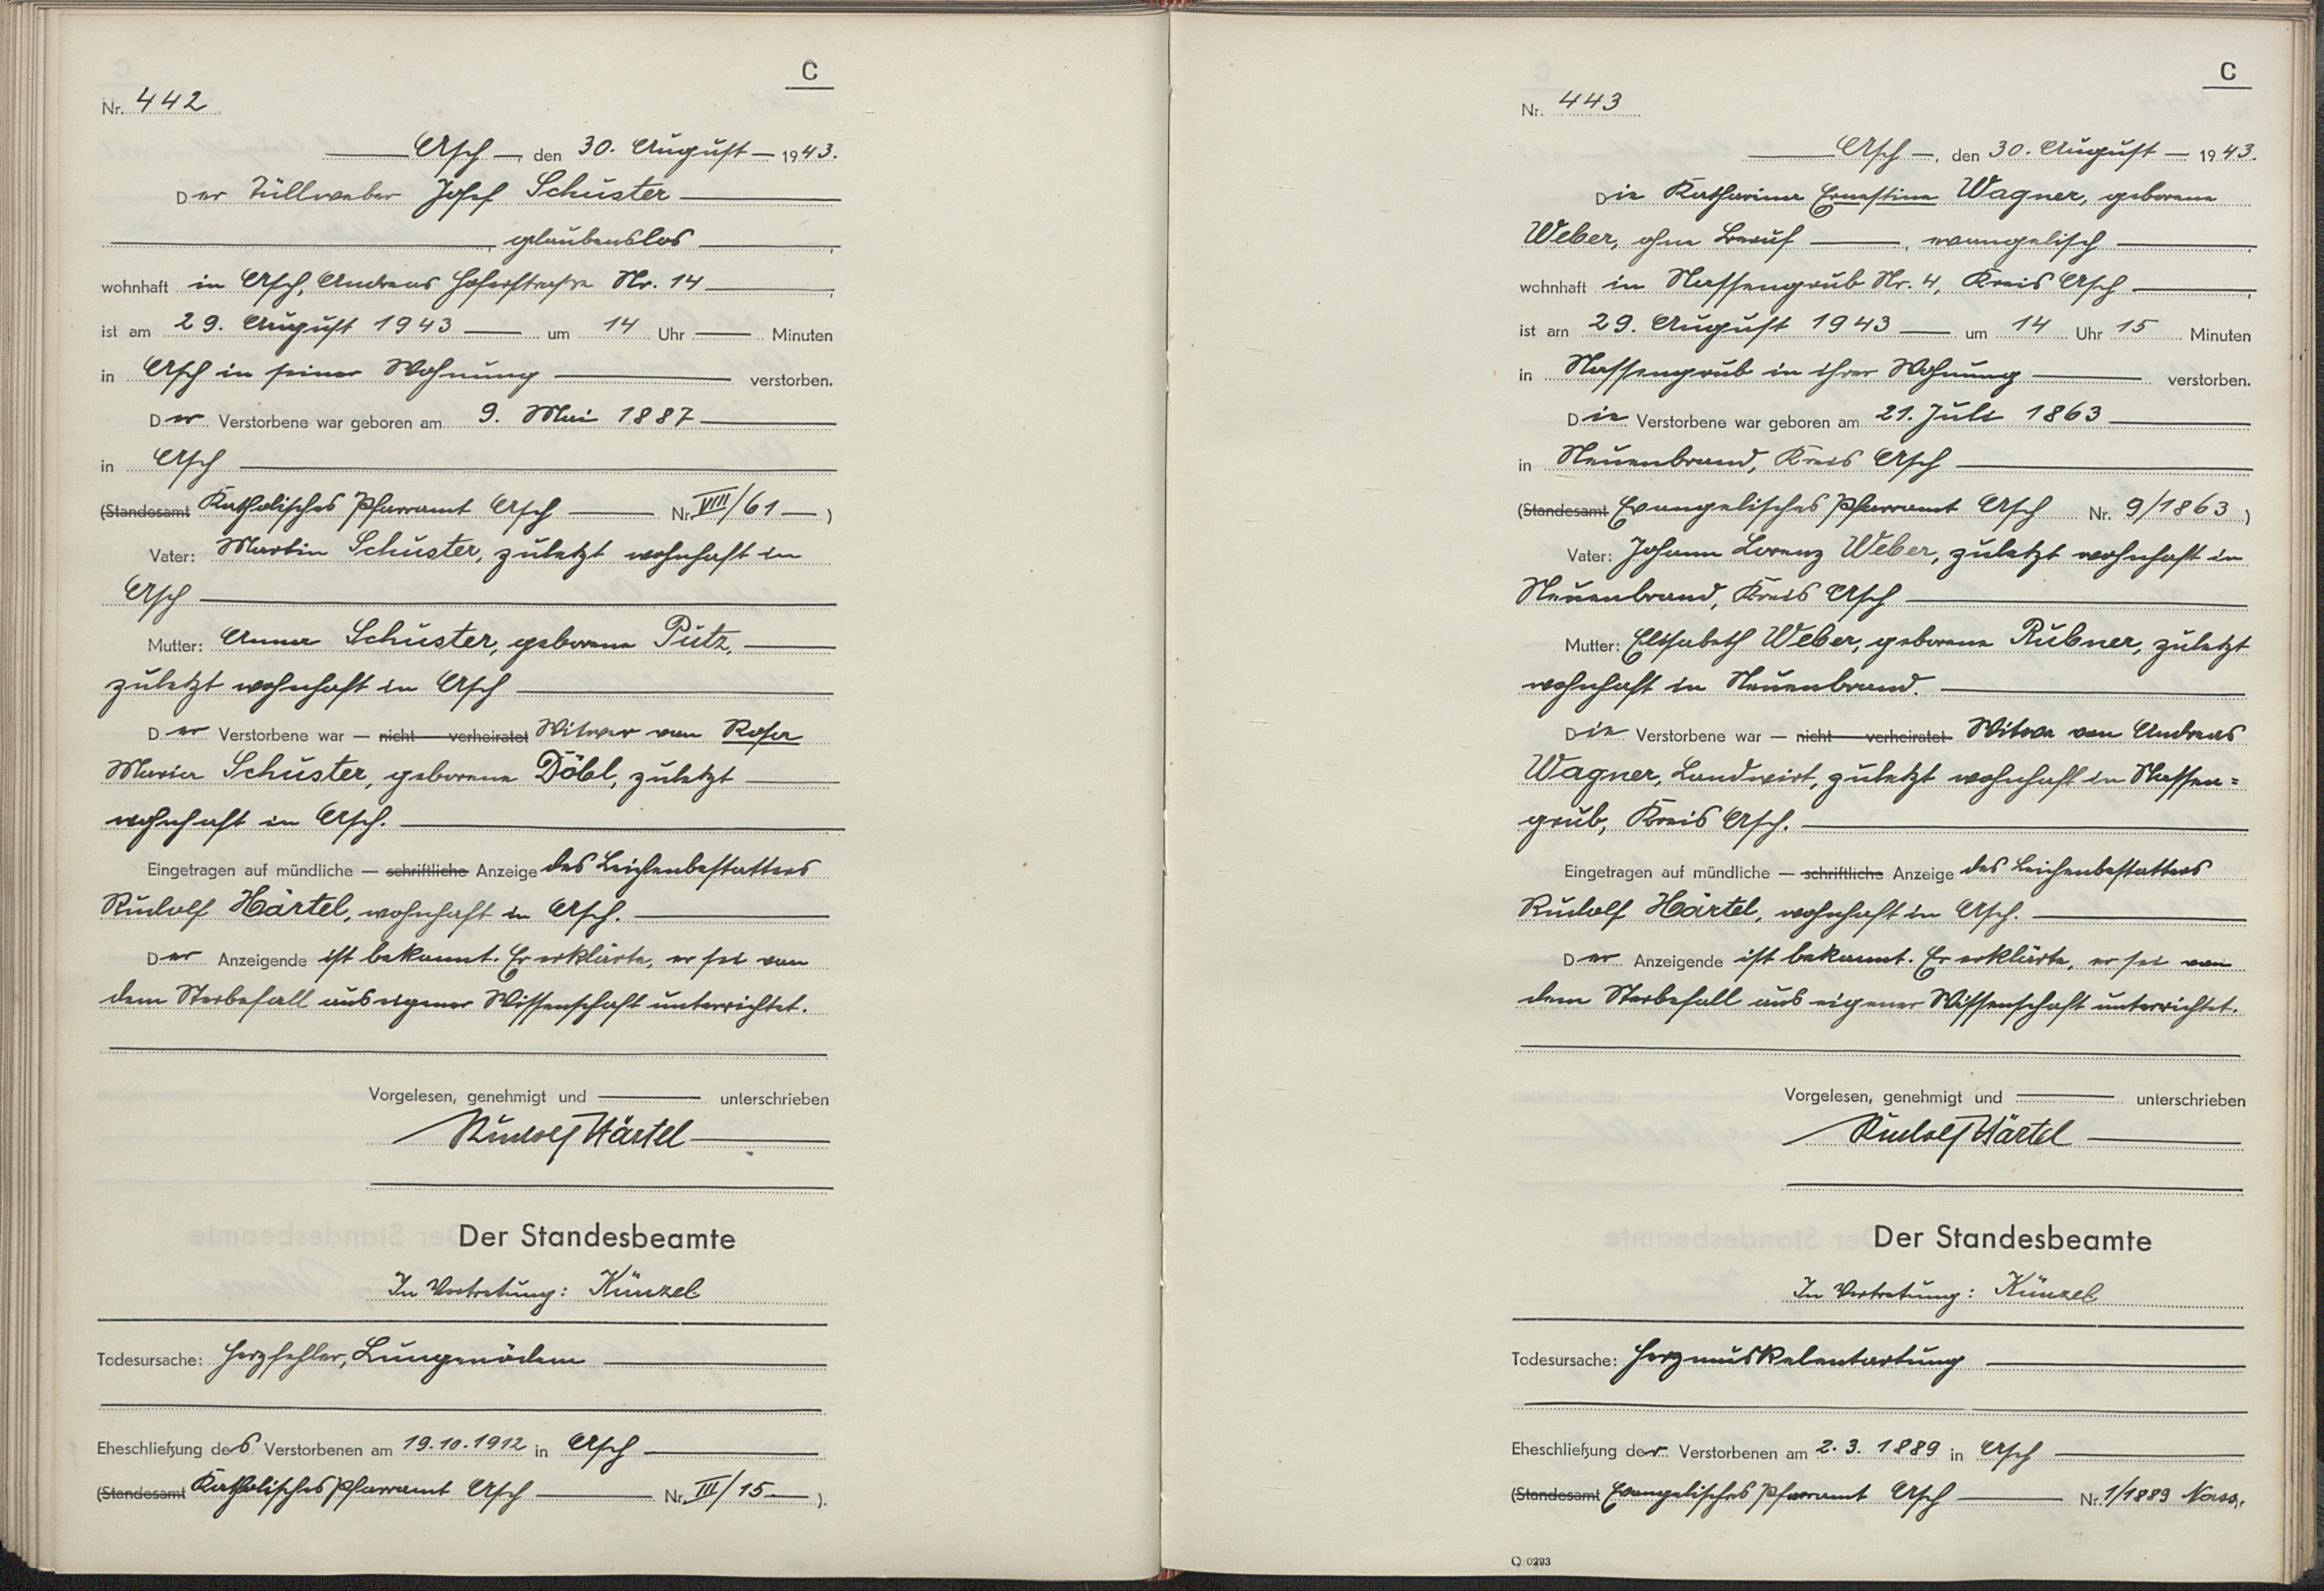 C
Nr. 442
Asch, den 30. August 1943.
Der Tüllweber Josef Schuster
, glaubenslos,
wohnhaft in Asch, Andreas Hoferstraße Nr. 14,
ist am 29. August 1943 um 14 Uhr Minuten
in Asch in seiner Wohnung verstorben.
Der Verstorbene war geboren am 9. Mai 1887
in Asch
(Standesamt Katholisches Pfarramt Asch Nr. VIII/61)
Vater: Martin Schuster, zuletzt wohnhaft in
Asch
Mutter: Anna Schuster, geborene Pütz,
zuletzt wohnhaft in Asch
Der Verstorbene war — nicht — verheiratet Witwer von Rosa
Maria Schuster, geborene Döbl, zuletzt
wohnhaft in Asch.
Eingetragen auf mündliche — schriftliche Anzeige des Leichenbestatters
Rudolf Härtel, wohnhaft in Asch.
Der Anzeigende ist bekannt. Er erklärte, er sei von
dem Sterbefall aus eigener Wissenschaft unterrichtet.
Vorgelesen, genehmigt und unterschrieben
Rudolf Härtel
Der Standesbeamte
In Vertretung: Künzel
Todesursache: Herzfehler, Lungenödem
Eheschließung des Verstorbenen am 19.10.1912 in Asch
(Standesamt Katholisches Pfarramt Asch Nr. III/15).
C
Nr. 443
Asch, den 30. August 1943.
Die Katharina Ernestine Wagner, geborene
Weber, ohne Beruf, evangelisch,
wohnhaft in Nassengrub Nr. 4, Kreis Asch,
ist am 29. August 1943 um 14 Uhr 15 Minuten
in Nassengrub in ihrer Wohnung verstorben.
Die Verstorbene war geboren am 21. Juli 1863
in Neuenbrand, Kreis Asch
(Standesamt Evangelisches Pfarramt Asch Nr. 9/1863)
Vater: Johann Lorenz Weber, zuletzt wohnhaft in
Neuenbrand, Kreis Asch
Mutter: Elisabeth Weber, geborene Rubner, zuletzt
wohnhaft in Neuenbrand.
Die Verstorbene war — nicht — verheiratet Witwe von Andreas
Wagner, Landwirt, zuletzt wohnhaft in Nassen=
grub, Kreis Asch.
Eingetragen auf mündliche — schriftliche Anzeige des Leichenbestatters
Rudolf Härtel, wohnhaft in Asch.
Der Anzeigende ist bekannt. Er erklärte, er sei von
dem Sterbefall aus eigener Wissenschaft unterrichtet.
Vorgelesen, genehmigt und unterschrieben
Rudolf Härtel
Der Standesbeamte
In Vertretung: Künzel
Todesursache: Herzmuskelentartung
Eheschließung der Verstorbenen am 2.3.1889 in Asch
(Standesamt Evangelisches Pfarramt Asch Nr. 1/1889 Nass.
Q 0293